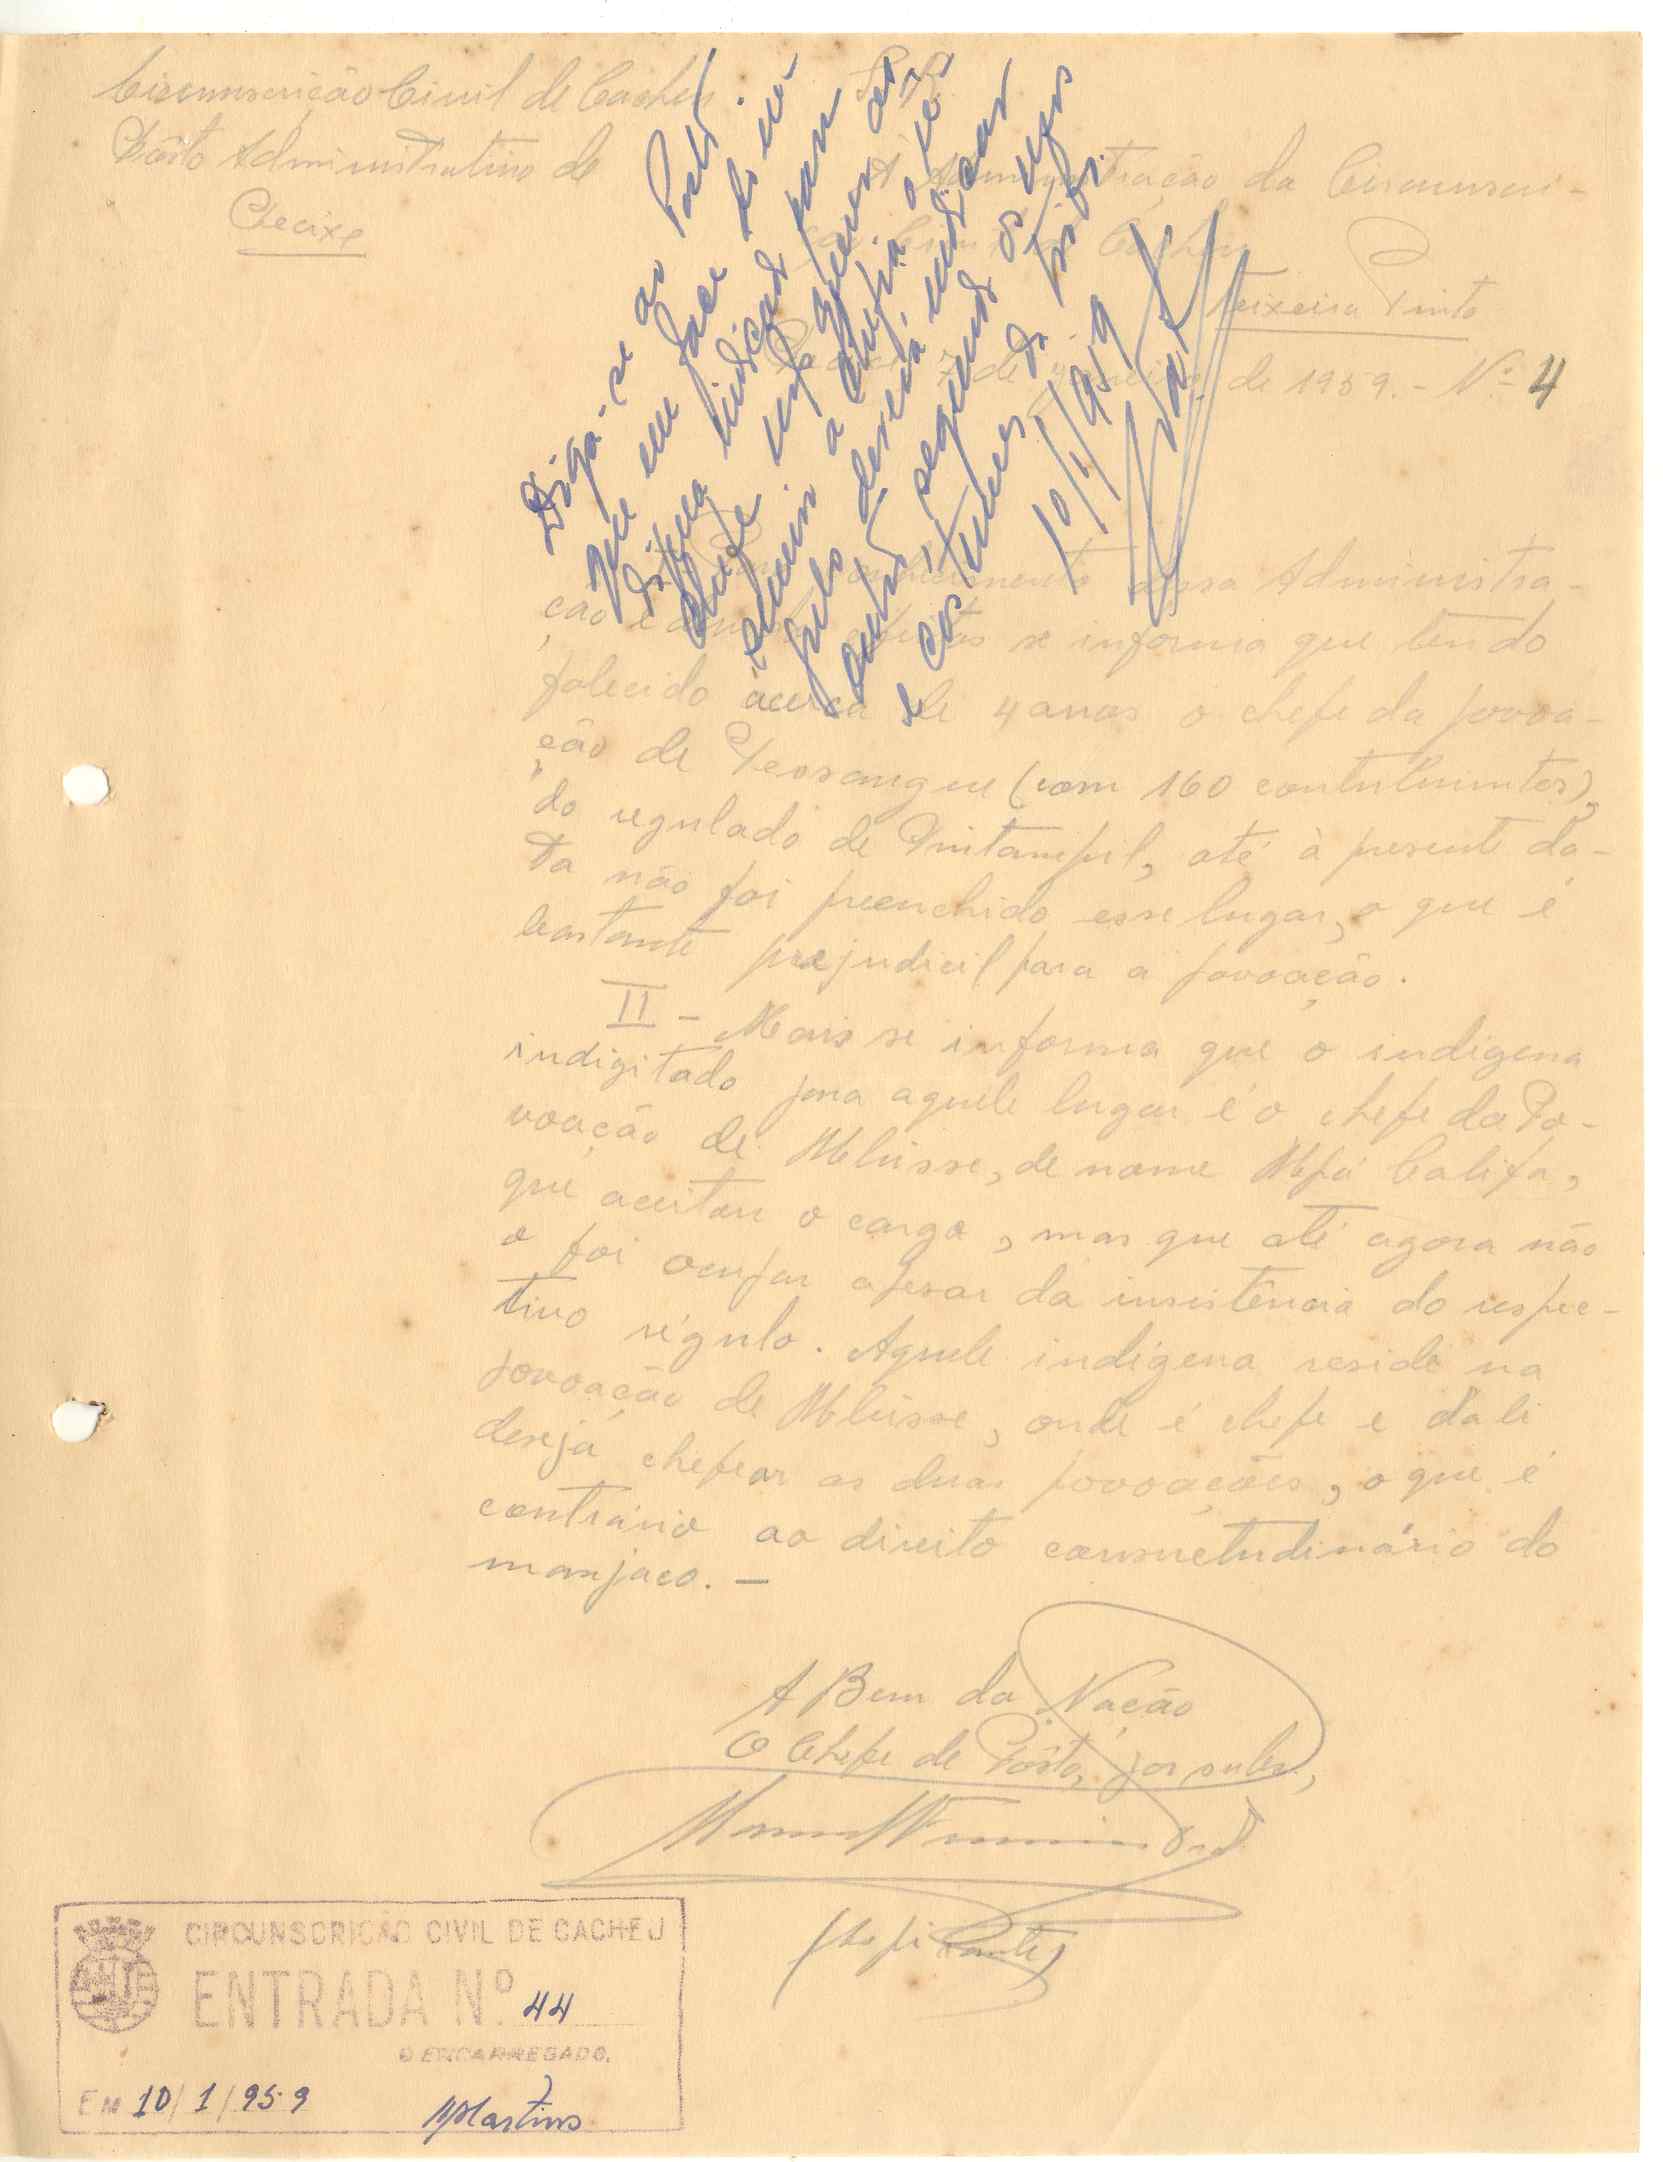 Circunscrição Civil de Cacheu
Pôsto Administrativo de
Checixe
S. R.
À Administração da Circunscri-
ção Civil de Cacheu
Teixeira Pinto
7 de Janeiro de 1959. - Nº 4
Diga-se ao Posto
que em face do in-
digena indicado para
chefe não querer as-
sumir a chefia o ré-
gulo deverá indicar
outro, segundo os usos
e costumes da tribo.
10/1/959
Para conhecimento dessa Administra-
ção e demais efeitos se informa que tendo
falecido àcerca de 4 anos o chefe da povoa-
ção de Pessangue (com 160 contribuintes),
do regulado de Pintampil, até à presente da-
ta não foi preenchido esse lugar, o que é
bastante prejudicil para a povoação.
II - Mais se informa que o indigena
indigitado para aquele lugar é o chefe da Po-
voação de Mblusse, de nome Mpá Califa,
que aceitou o cargo, mas que até agora não
o foi ocupar apesar da insistência do respec-
tivo régulo. Aquele indígena reside na
povoação de Mblusse, onde é chefe e dali
deseja chefear as duas povoações, o que é
contrário ao direito consuetudinário do
manjaco. -
A Bem da Nação
O Chefe de Pôsto, por subs.,
CIRCUNSCRIÇÃO CIVIL DE CACHEU
ENTRADA Nº. 44
O ENCARREGADO,
EM 10/1/959
Martins